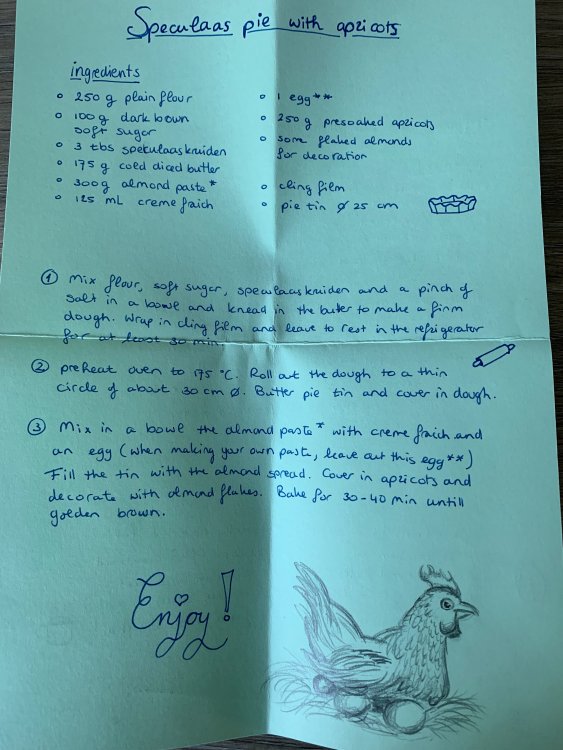 Speculaas pie with apricots
ingredients
250 g plain flour
100 g dark brown
soft sugar
3 tbs spekulaaskruiden
175 g cold diced butter
300 g almond paste*
125 mL creme fraich
1 egg**
250 g presoaked apricots
some flaked almonds
for decoration
cling film
pie tin ø 25 cm
① Mix flour, soft sugar, speculaaskruiden and a pinch of
salt in a bowl and knead in the butter to make a firm
dough. Wrap in cling film and leave to rest in the refrigerator
for at least 30 min.
② preheat oven to 175 °C. Roll out the dough to a thin
circle of about 30 cm ø. Butter pie tin and cover in dough.
③ Mix in a bowl the almond paste* with creme fraich and
an egg (when making your own paste, leave out this egg**)
Fill the tin with the almond spread. Cover in apricots and
decorate with almond flakes. Bake for 30-40 min untill
golden brown.
Enjoy!